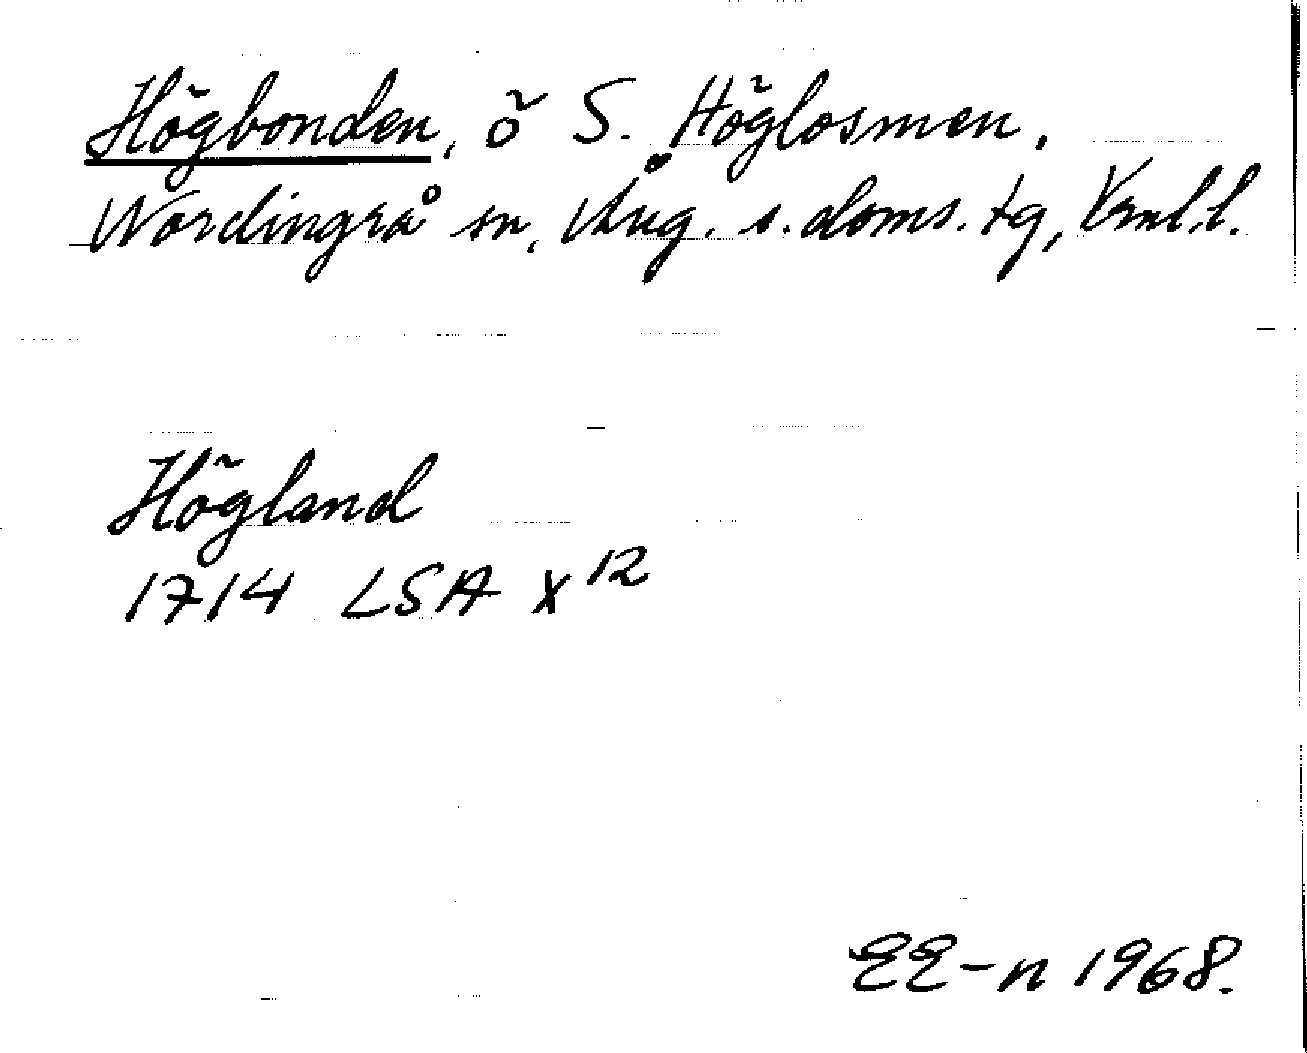 Högbonden, ö S. Höglosmen.
Nordingrå sn, Ång. s. doms. tg, Vrnl.l.
Högland
1714 LSA X12
EE-n 1968.